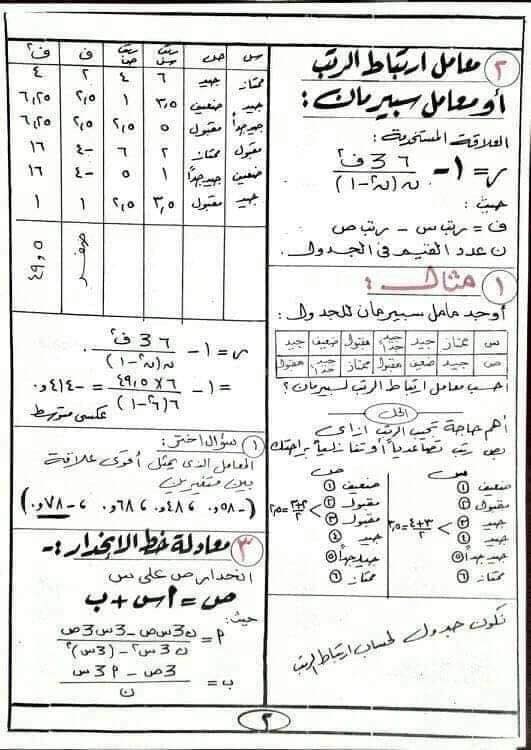 ٢ معامل ارتباط الرتب
أو معامل سبيرمان :
العلاقة المستخدمة :
ر = ١ - ٦ Σ ف² / ن(ن² - ١)
حيث :
ف = رتب س - رتب ص
ن عدد القيم فى الجدول .
١ مثال :
أوجد معامل سبيرمان للجدول :
س ممتاز جيد جيد جدا مقبول ضعيف جيد
ص جيد ضعيف مقبول ممتاز جيد جدا مقبول
أحسب معامل ارتباط الرتب لسبيرمان ؟
الحل
أهم حاجة تجيب الرتب ازاى
رتب تصاعدياً أو تنازلياً براحتك
س
١ ضعيف
٢ مقبول
٣ جيد
٤ جيد
٣+٤ / ٢ = ٣,٥
٥ جيد جداً
٦ ممتاز
ص
١ ضعيف
٢ مقبول
٣ مقبول
٢+٣ / ٢ = ٢,٥
٤ جيد
٥ جيد جداً
٦ ممتاز
نكون جدول لحساب ارتباط الرتب
س ص رتب س رتب ص ف ف²
ممتاز جيد ٦ ٤ ٢ ٤
جيد ضعيف ٣,٥ ١ ٢,٥ ٦,٢٥
جيد جداً مقبول ٥ ٢,٥ ٢,٥ ٦,٢٥
مقبول ممتاز ٢ ٦ -٤ ١٦
ضعيف جيد جداً ١ ٥ -٤ ١٦
جيد مقبول ٣,٥ ٢,٥ ١ ١
صفر ٤٩,٥
ر = ١ - ٦ Σ ف² / ن(ن² - ١)
= ١ - ٦ × ٤٩,٥ / ٦(٦² - ١) = -٤١٤,٠
عكسي متوسط
١ سؤال اختر :
المعامل الذى يمثل أقوى علاقة
بين متغيرين
(-٥٨,٠ ، ٤٨,٠ ، ٦٨,٠ ، -٧٨,٠)
٣ معادلة خط الإنحدار :-
انحدار ص على س
ص = أ س + ب
حيث :
أ = ن Σ س ص - Σ س Σ ص / ن Σ س² - (Σ س)²
ب = Σ ص - أ Σ س / ن
٢